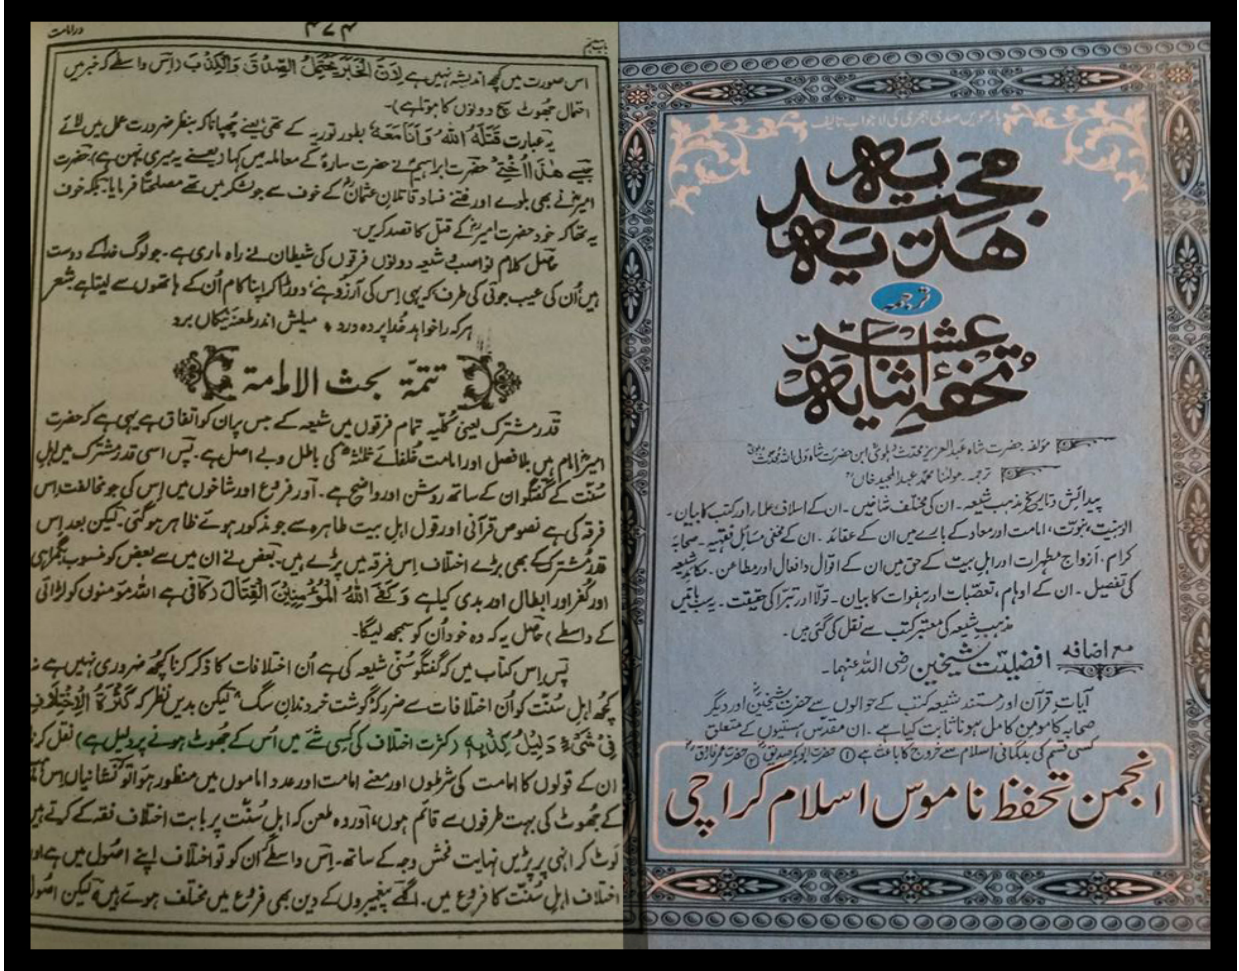 بارھویں صدی ہجری کی لاجواب تالیف
ھدیہ مجیدیہ
ترجمہ
تحفہ اثنا عشریہ
مؤلفہ حضرت شاہ عبدالعزیز محدث دہلوی ابن حضرت شاہ ولی اللہ محدث
ترجمہ۔ مولٰنا محمد عبدالمجید خاں
پیدائش و تاریخ مذہب شیعہ۔ ان کی مختلف شاخیں۔ ان کے اسلاف علماء اور کتب کا بیان۔
الوہیت، نبوت، امامت اور معاد کے بارے میں ان کے عقائد۔ ان کے مخفی مسائل فقہیہ۔ صحابہ
کرام، ازواج مطہرات اور اہل بیت کے حق میں ان کے اقوال و افعال اور مطاعن۔ مکائد شیعہ
کی تفصیل۔ ان کے اوہام، تعصبات اور ہفوات کا بیان۔ تولّا اور تبرّا کی حقیقت۔ یہ سب باتیں
مذہب شیعہ کی معتبر کتب سے نقل کی گئی ہیں۔
مع اضافہ افضلیت شیخین رضی اللہ عنہما۔
آیات قرآن اور مستند شیعہ کتب کے حوالوں سے حضرت شیخین اور دیگر
صحابہ کا مومن کامل ہونا ثابت کیا ہے۔ ان مقدس ہستیوں کے متعلق
کسی قسم کی بدگمانی اسلام سے خروج کا باعث ہے ① حضرت ابوبکر صدیق ② حضرت عمر فاروق
انجمن تحفظ ناموس اسلام کراچی
۴۷۴
اس صورت میں کچھ اندیشہ نہیں ہے لِاَنَّ الْخَبَرَ یَحْتَمِلُ الصِّدْقَ وَالْکِذْبَ (اس واسطے کہ خبر میں
احتمال جھوٹ سچ دونوں کا ہوتا ہے)۔
یہ عبارت قَتَلَهُ اللهُ وَاَنَا مَعَهُ بطور توریہ کے تھی یعنے چھپانا کہ بنظر ضرورت عمل میں لائے
جیسے هٰذَا اُخْتِیْ حضرت ابراہیم نے حضرت سارہ کے معاملہ میں کہا (یعنے یہ میری بہن ہے) حضرت
امیر نے بھی بلوے اور فتنے فساد قاتلان عثمان کے خوف سے جو لشکر میں تھے مصلحتًا فرمایا۔ بلکہ خوف
یہ تھا کہ خود حضرت امیر کے قتل کا قصد کریں۔
حاصل کلام نواصب و شیعہ دونوں فرقوں کی شیطان نے راہ ماری ہے۔ جو لوگ خدا کے دوست
ہیں اُن کی عیب جوئی کی طرف کہ یہی اِس کی آرزو ہے دوڑا کر اپنا کام اُن کے ہاتھوں سے لیتا ہے شعر
ہر کہ را خواہد خدا پردہ درد میلش اندر طعنۂ نیکاں برد
تتمّة بحث الامامة
قدر مشترک یعنی کلیہ تمام فرقوں میں شیعہ کے جس پر ان کو اتفاق ہے یہی ہے کہ حضرت
امیر امام ہیں بلا فصل اور امامت خلفائے ثلٰثہ کی باطل و بے اصل ہے۔ پس اسی قدر مشترک میں اہل
سُنّت کے گفتگو ان کے ساتھ روشن اور واضح ہے۔ اور فروع اور شاخوں میں اِس کی جو مخالفت اس
فرقہ کی ہے نصوص قرآنی اور قول اہل بیت طاہرہ سے جو مذکور ہوئے ظاہر ہو گئی۔ لیکن بعد اِس
قدر مشترک کے بھی بڑے اختلاف اِس فرقہ میں پڑے ہیں۔ بعض نے ان میں سے بعض کو منسوب بگمراہی
اور کفر اور ابطال اور بدی کیا ہے وَ کَفَی اللهُ الْمُؤْمِنِیْنَ الْقِتَالَ (کافی ہے اللہ مومنوں کو لڑائی
کے واسطے) حاصل یہ کہ وہ خود اُن کو سمجھ لیگا۔
پس اِس کتاب میں کہ گفتگو سُنّی شیعہ کی ہے اُن اختلافات کا ذکر کرنا کچھ ضروری نہیں ہے نہ
کچھ اہل سُنّت کو اُن اختلافات سے ضرر کہ گوشت خر دندان سگ لیکن بدیں نظر کہ کَثْرَةُ الْاِخْتِلَافِ
فِیْ شَیْءٍ دَلِیْلُ کِذْبِهٖ (کثرت اختلاف کی کسی شے میں اُس کے جھوٹ ہونے پر دلیل ہے) نقل کرنا
ان کے قولوں کا امامت کی شرطوں اور معنے امامت اور عدد اماموں میں منظور ہوا تو کہ نشانیاں اِس
کے جھوٹ کی بہت طرفوں سے قائم ہوں، اور وہ طعن کہ اہل سُنّت پر بابت اختلاف فقہ کے کرتے ہیں
لوٹ کر انہی پر پڑیں نہایت فحش وجہ کے ساتھ۔ اِس واسطے کہ ان کو تو اختلاف اپنے اصول میں ہے اور
اختلاف اہل سُنّت کا فروع میں۔ اگلے پیغمبروں کے دین بھی فروع میں مختلف ہوتے ہیں لیکن اصول